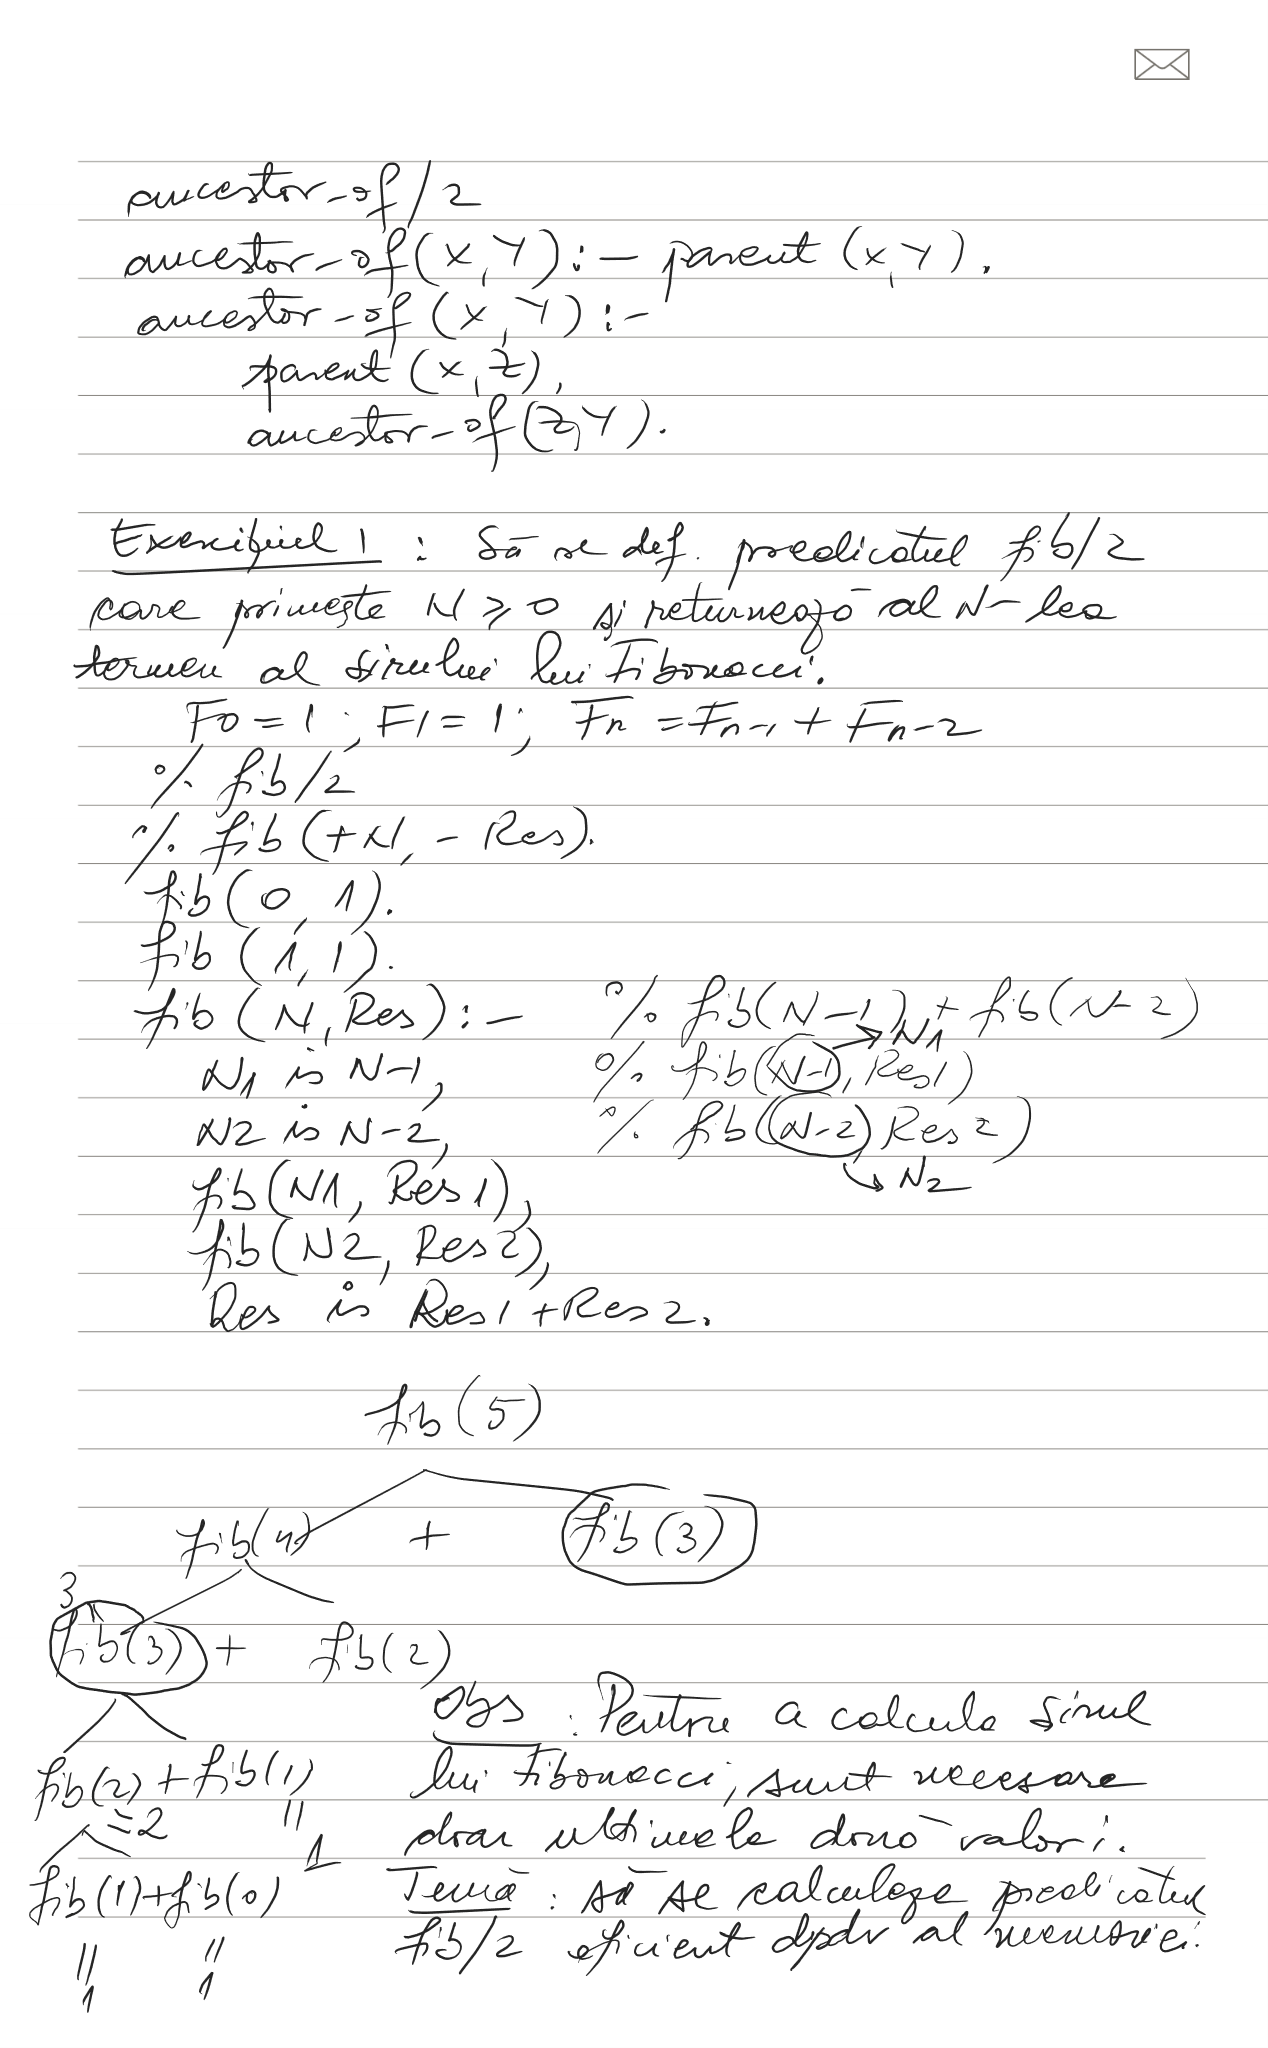 ancestor-of/2
ancestor-of(X,Y):- parent (X,Y).
ancestor-of (X,Y):-
parent (X,Z),
ancestor-of(Z,Y).
Exercițiul 1 : Să se def. predicatul fib/2
care primește N ≥ 0 și returnează al N-lea
termen al șirului lui Fibonacci.
F0 = 1 ; F1 = 1 ; Fn = Fn-1 + Fn-2
% fib/2
% fib (+N, - Res).
fib (0, 1).
fib (1, 1).
fib (N, Res):- % fib(N-1) + fib(N-2)
N1 is N-1, % fib(N-1, Res1) → N1
N2 is N-2, % fib(N-2, Res2)
→ N2
fib(N1, Res1),
fib(N2, Res2),
Res is Res1 + Res2.
fib (5)
fib(4) + fib (3)
3
fib(3) + fib(2)
Obs : Pentru a calcula șirul
fib(2) + fib(1) lui Fibonacci, sunt necesare
=2 || doar ultimele două valori.
1
fib(1)+fib(0) Temă : să se calculeze predicatul
fib/2 eficient dpdv al memoriei.
|| ||
1 1